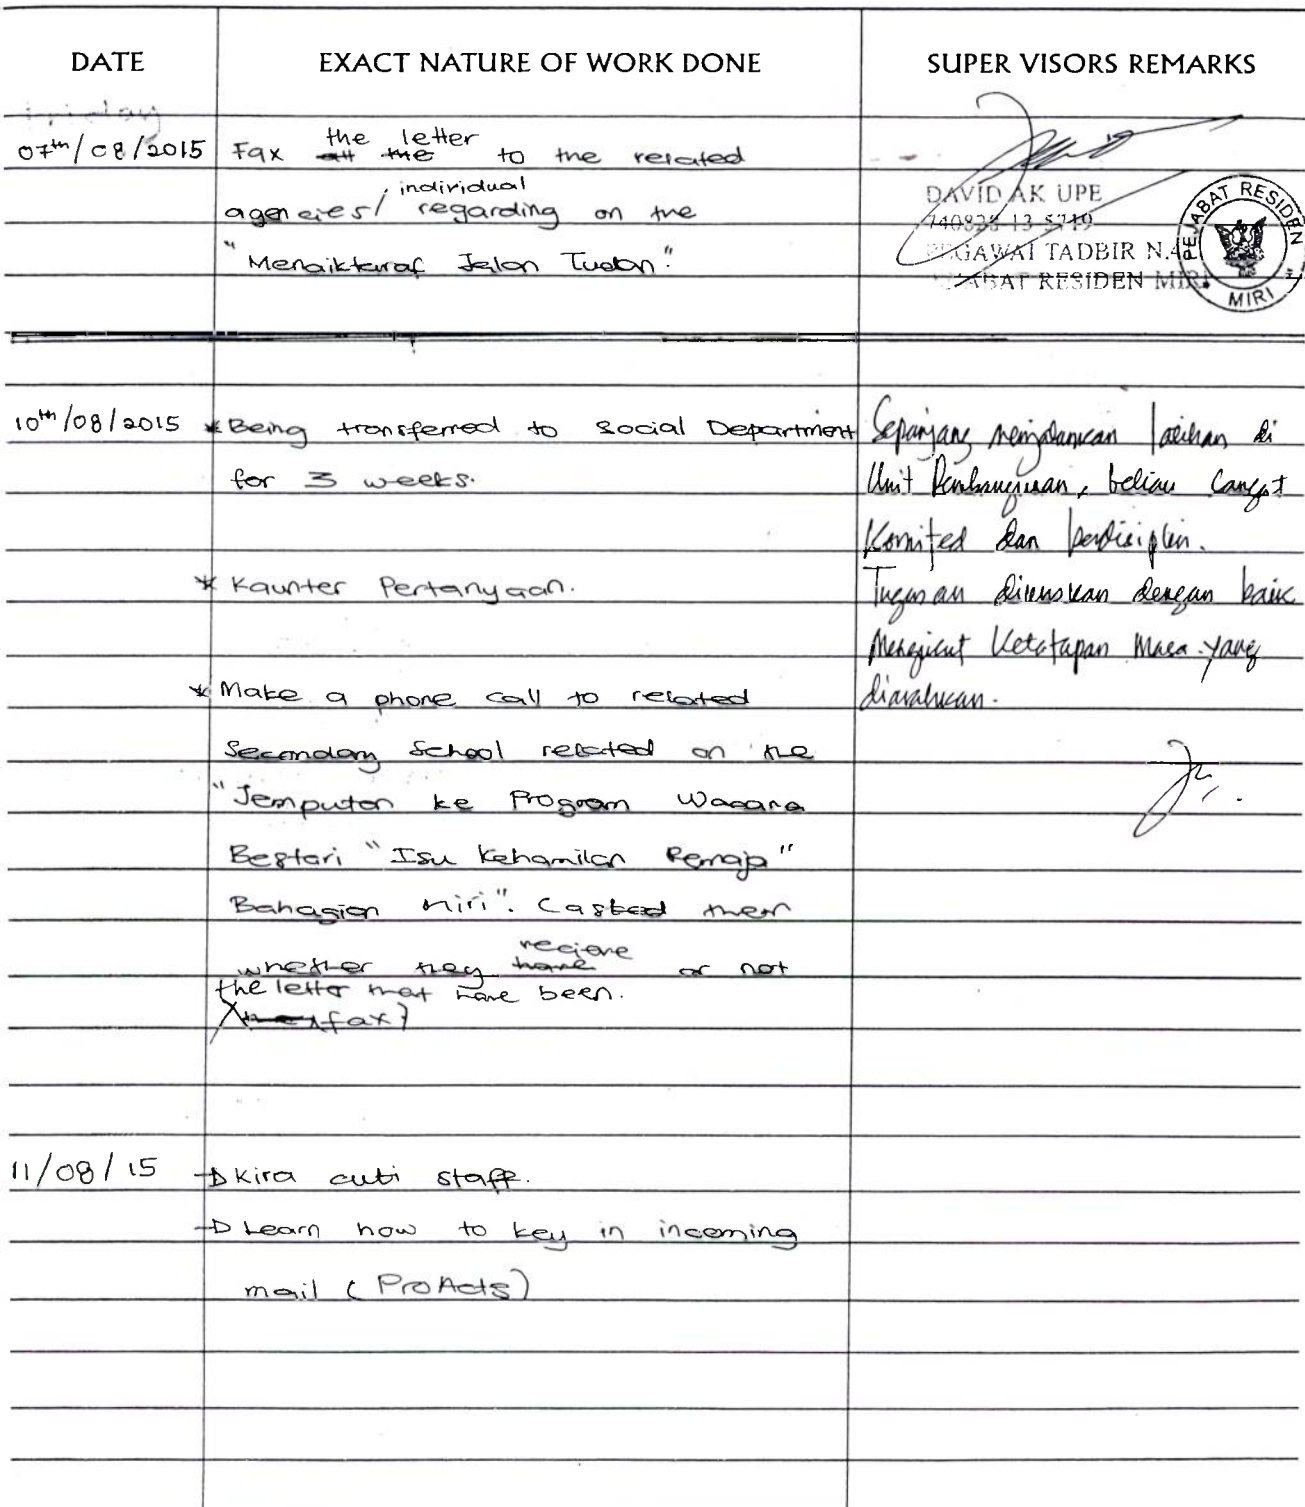 DATE
EXACT NATURE OF WORK DONE
SUPER VISORS REMARKS
Friday
07th/08/2015
Fax all the the letter to the related
agencies/ individual regarding on the
"Menaiktaraf Jalan Tudan."
DAVID AK UPE
740828-13-5719
PEGAWAI TADBIR N.41
PEJABAT RESIDEN MIRI
PEJABAT RESIDEN
MIRI
10th/08/2015
* Being transferred to Social Department
for 3 weeks.
* Kaunter Pertanyaan.
* Make a phone call to related
Secondary School related on the
"Jemputan ke Program Wacana
Bestari "Isu Kehamilan Remaja"
Bahagian Miri". (asked them
whether they have recieve or not
the letter that have been.
fax)
Sepanjang menjalankan latihan di
Unit Pembangunan, beliau sangat
Komited dan berdisiplin.
Tugasan diuruskan dengan baik
Mengikut Ketetapan Masa yang
diarahkan.
11/08/15
→ Kira cuti staff.
→ Learn how to key in incoming
mail (ProActs)